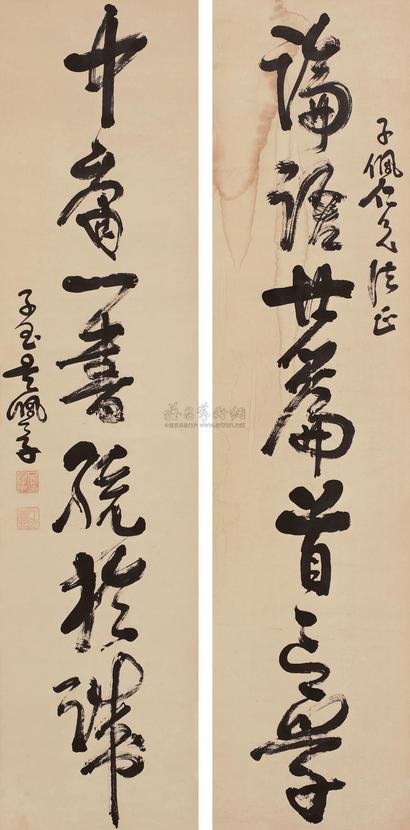 子佩仁兄法正
論語廿篇首言學
中庸一書統於誠
子玉吳佩孚
雅昌藝術網
www.artron.net